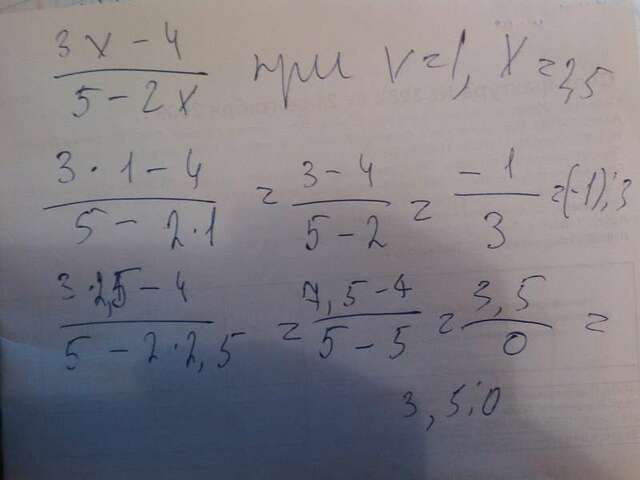 3x-4/5-2x при x=1, x=2,5
3·1-4/5-2·1 = 3-4/5-2 = -1/3 = (-1):3
3·2,5-4/5-2·2,5 = 7,5-4/5-5 = 3,5/0 =
3,5:0